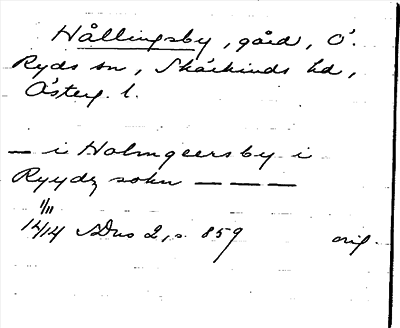 Hållingsby, gård, Ö.
Ryds sn, Skärkinds hd,
Österg. l.
— i Holmgeersby i
Ryydz sokn — — —
1/11
1414 SDns 2, s. 859 orig.